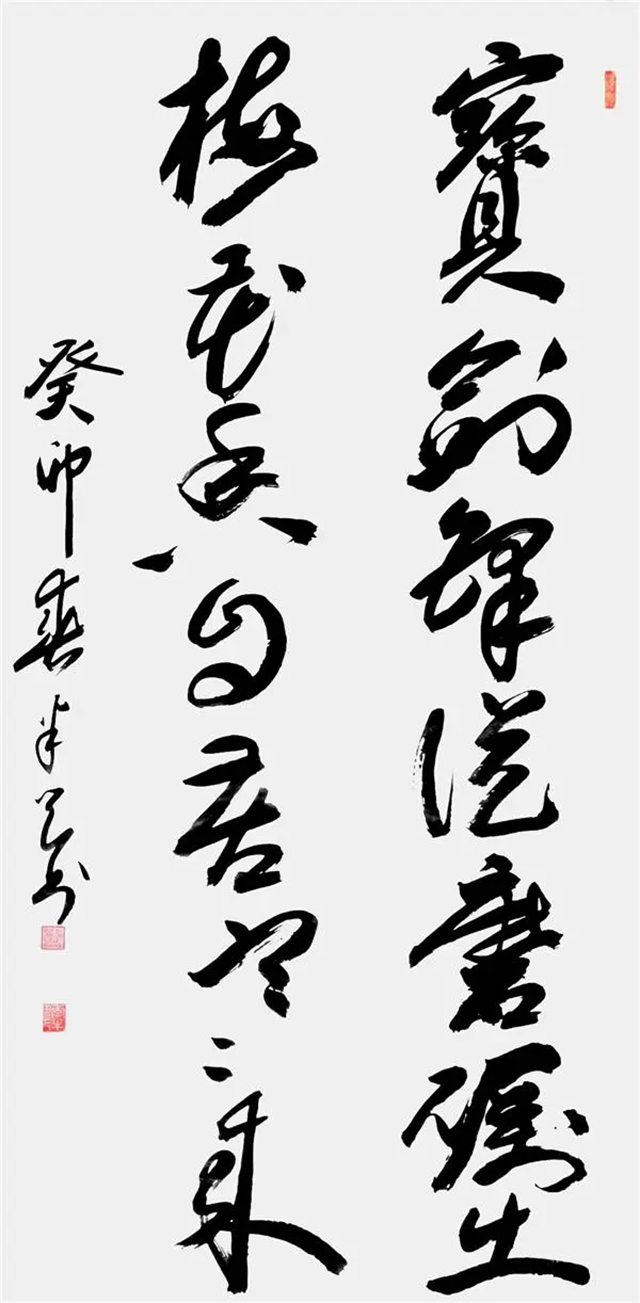 寶劍鋒從磨礪出
梅花香自苦寒来
癸卯春书